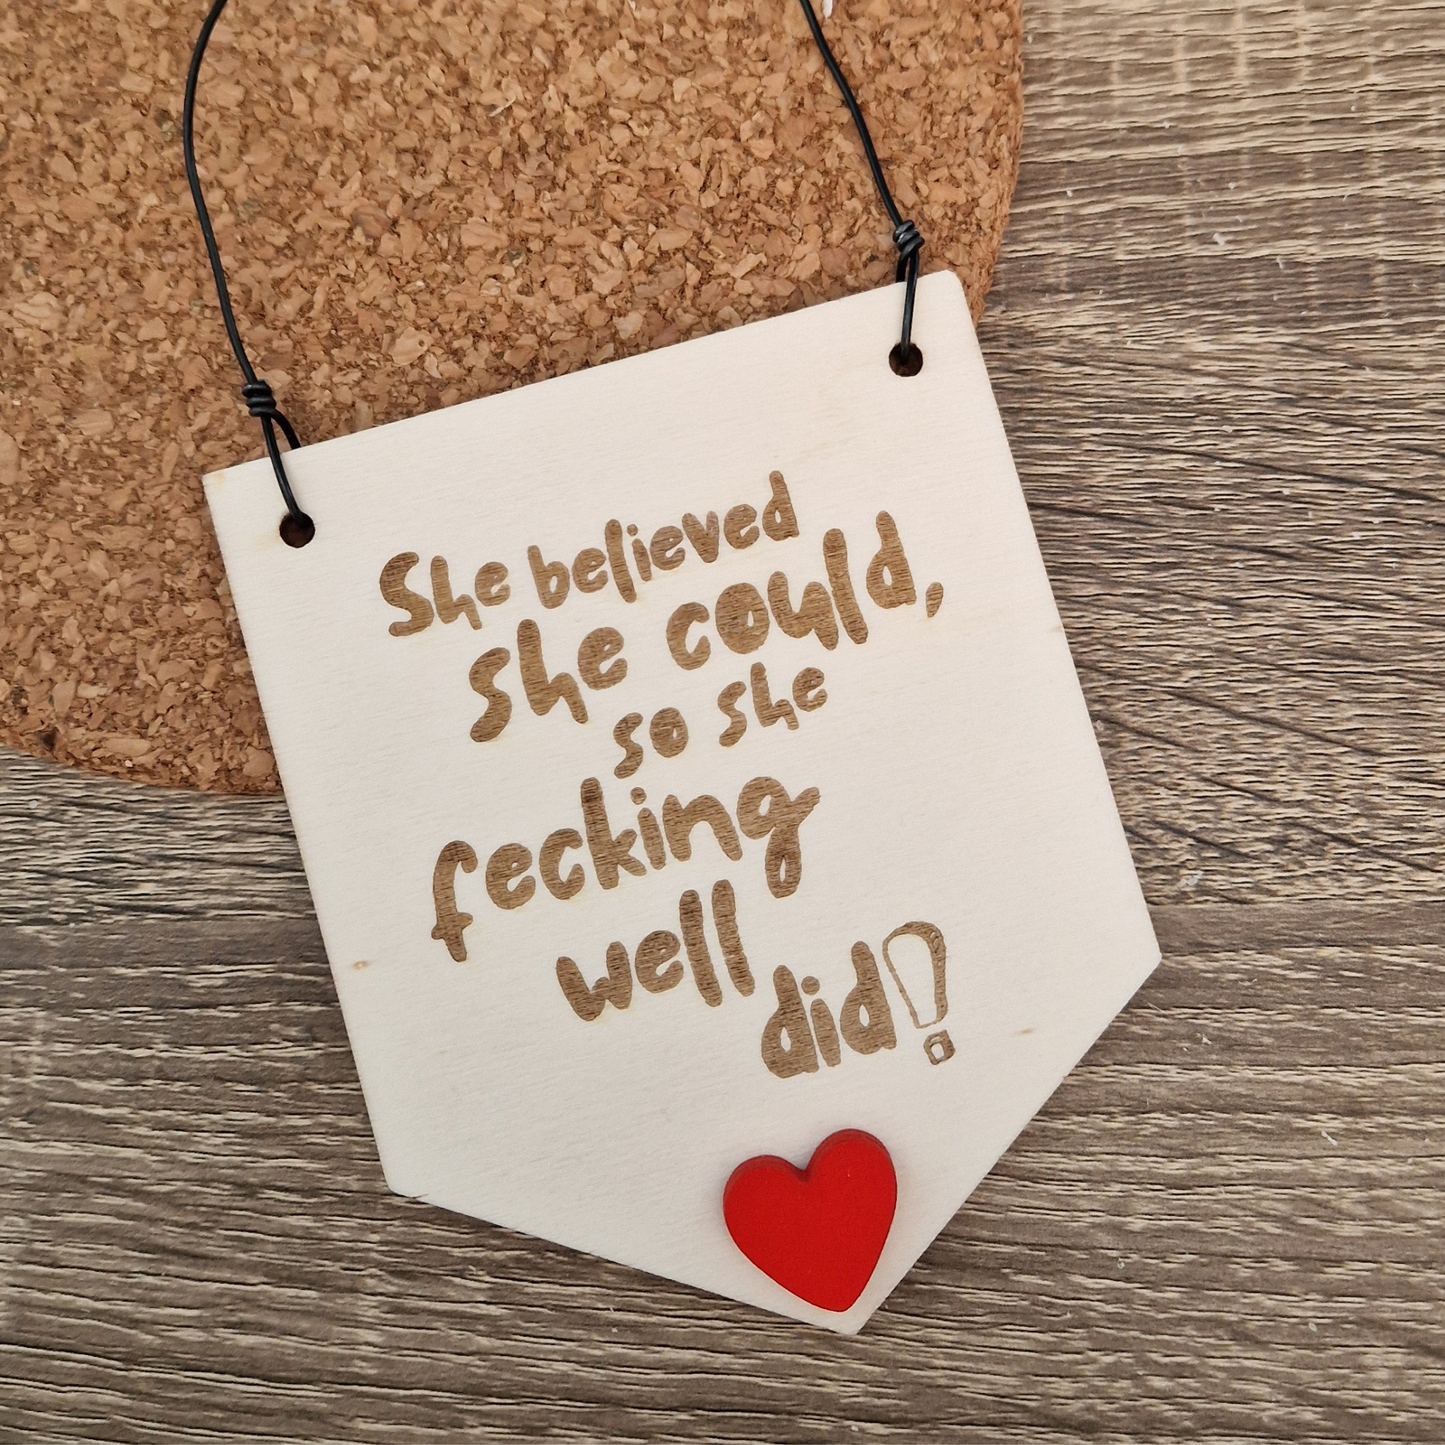 She believed
she could,
so she
fecking
well
did!